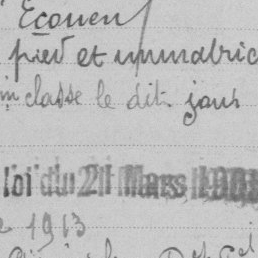 Ecouen
pied et immatric
classe le dit jour
loi du 21 Mars 1905
1913